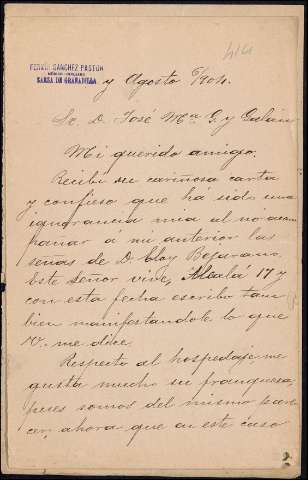 414
FERMIN SANCHEZ PASTOR
MÉDICO-CIRUJANO
ZARZA DE GRANADILLA
y Agosto 6/904.
Sr. D. José Mª G. y Galán
Mi querido amigo.
Recibí su cariñosa carta
y confieso que há sido una
ignorancia mia al no acom
pañar á mi anterior las
señas de D. Eloy Bejarano,
Este Señor vive, Alcalá 17 y
con esta fecha escribo tam
bien manifestandole lo que
V. me dice.
Respecto al hospedaje me
gusta mucho su franqueza,
pues somos del mismo pare
cer, ahora que en este caso